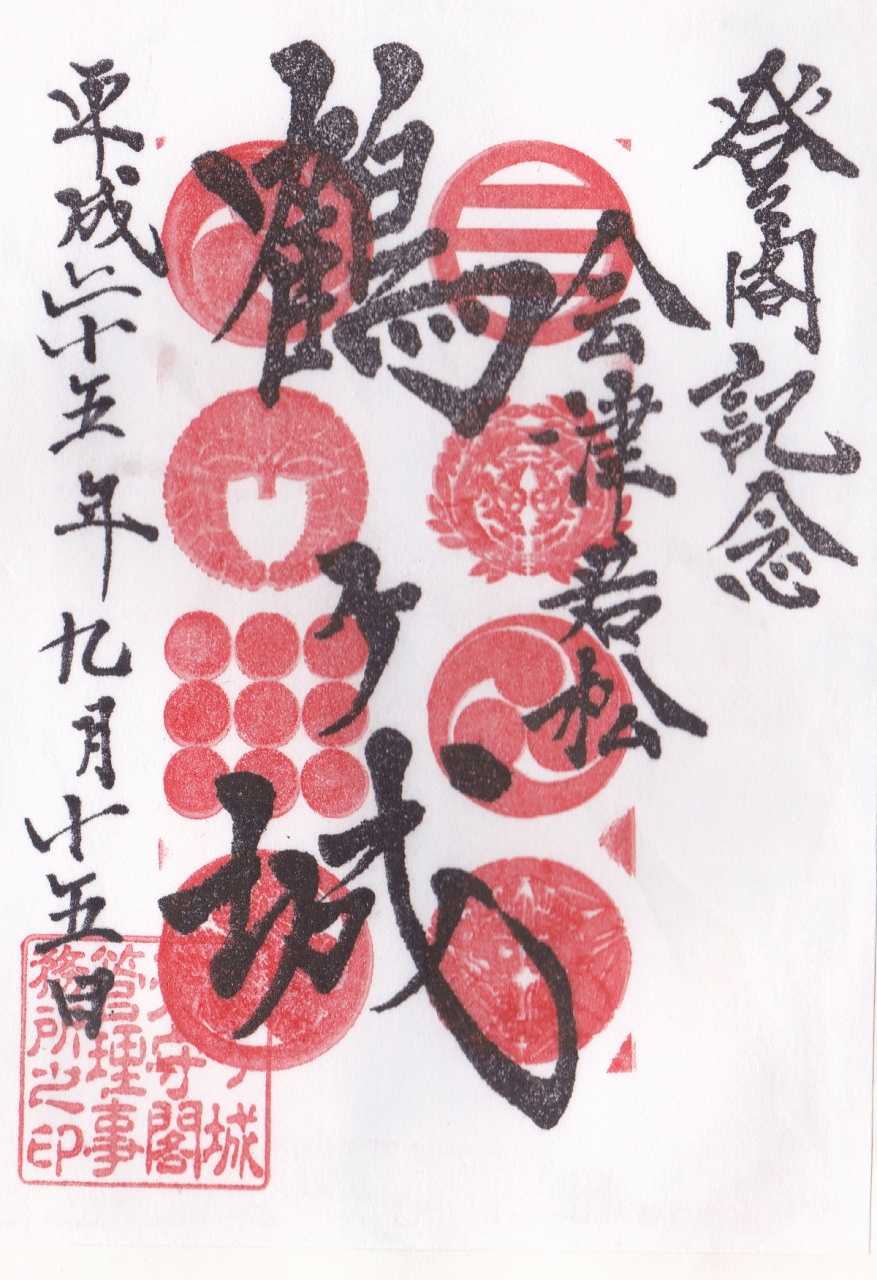 登閣記念
会津若松
鶴ヶ城
平成二十五年九月十五日
ヶ城
天守閣
管理事
務所之印